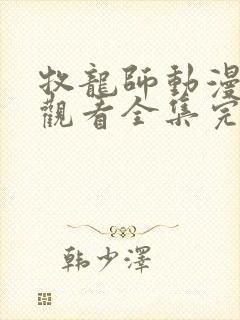 牧龍師動漫
觀看全集完
韩少澤